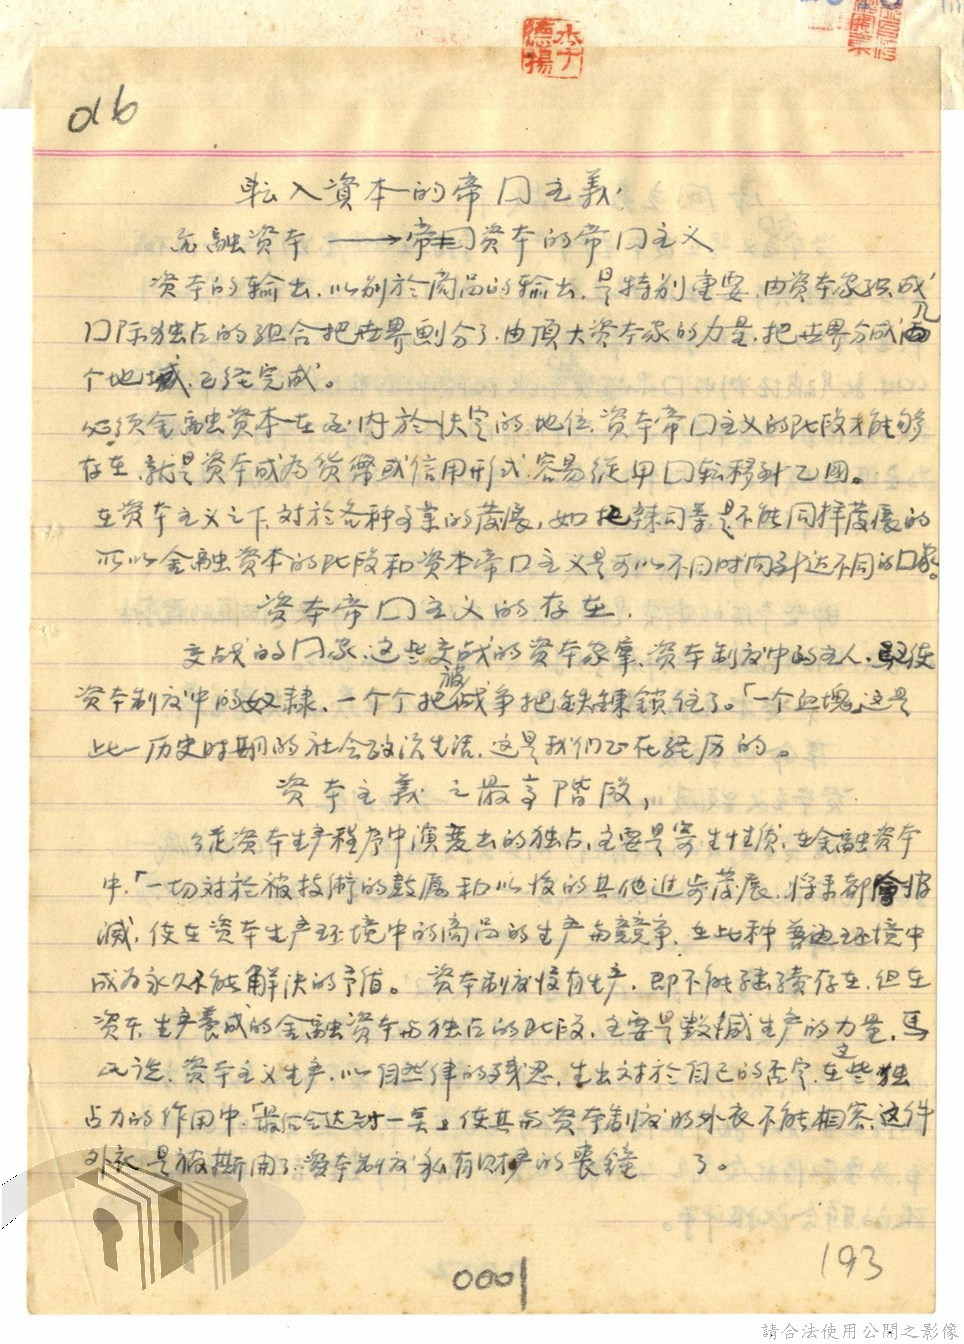 李德揚
016
転入資本的帝囗主義
金融资本 → 帝囗资本的帝囗主义
资本的输出,以别於商品的输出,是特别重要,由资本家组成
囗际独占的组合把世界劃分了,由頂大资本家的力量,把世界分成几
个地域,已经完成。
必须金融资本在国内於决定的地位,资本帝囗主义的阶段才能够
存在,就是资本成为货幣或信用形式,容易從甲囗転移到乙囲。
在资本主义之下,对於各种事業的發展,如托辣司等是不能同样發展的
所以金融资本的阶段和资本帝囗主义是可以不同时间到达不同的囗家。
资本帝囗主义的存在.
交战的囗家,这些交战的资本家拿,资本制度中的主人,驱使
资本制度中的奴隸,一个个把被战争把鉄鍊鎖住了。「一个血塊」这是
此一历史时期的社会政治生活,这是我们正在经历的。
资本主義之最高階段,
從资本生产程序中演変出的独占,主要是寄生性质,在金融资本
中,「一切对於被技術的鼓厲和以後的其他进步發展,将来都會消
减,使在资本生产环境中的商品的生产与競争,在此种普遍环境中
成为永久不能解决的矛盾。 资本制度没有生产,即不能継續存在,但在
资本生产養成的金融资本与独占的阶段,主要是数减生产的力量,馬
氏说,资本主义生产,以自然律的残忍,生出对於自己的否定,在这些独
占力的作用中,「最后会达到一点」使其与资本制度的外衣不能相容,这件
外衣是被撕開了,资本制度私有财产的喪鐘 了。
0001
193
請合法使用公開之影像